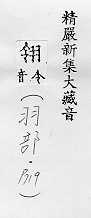 精嚴新集大藏音
翎
音令
(羽部·P.19)